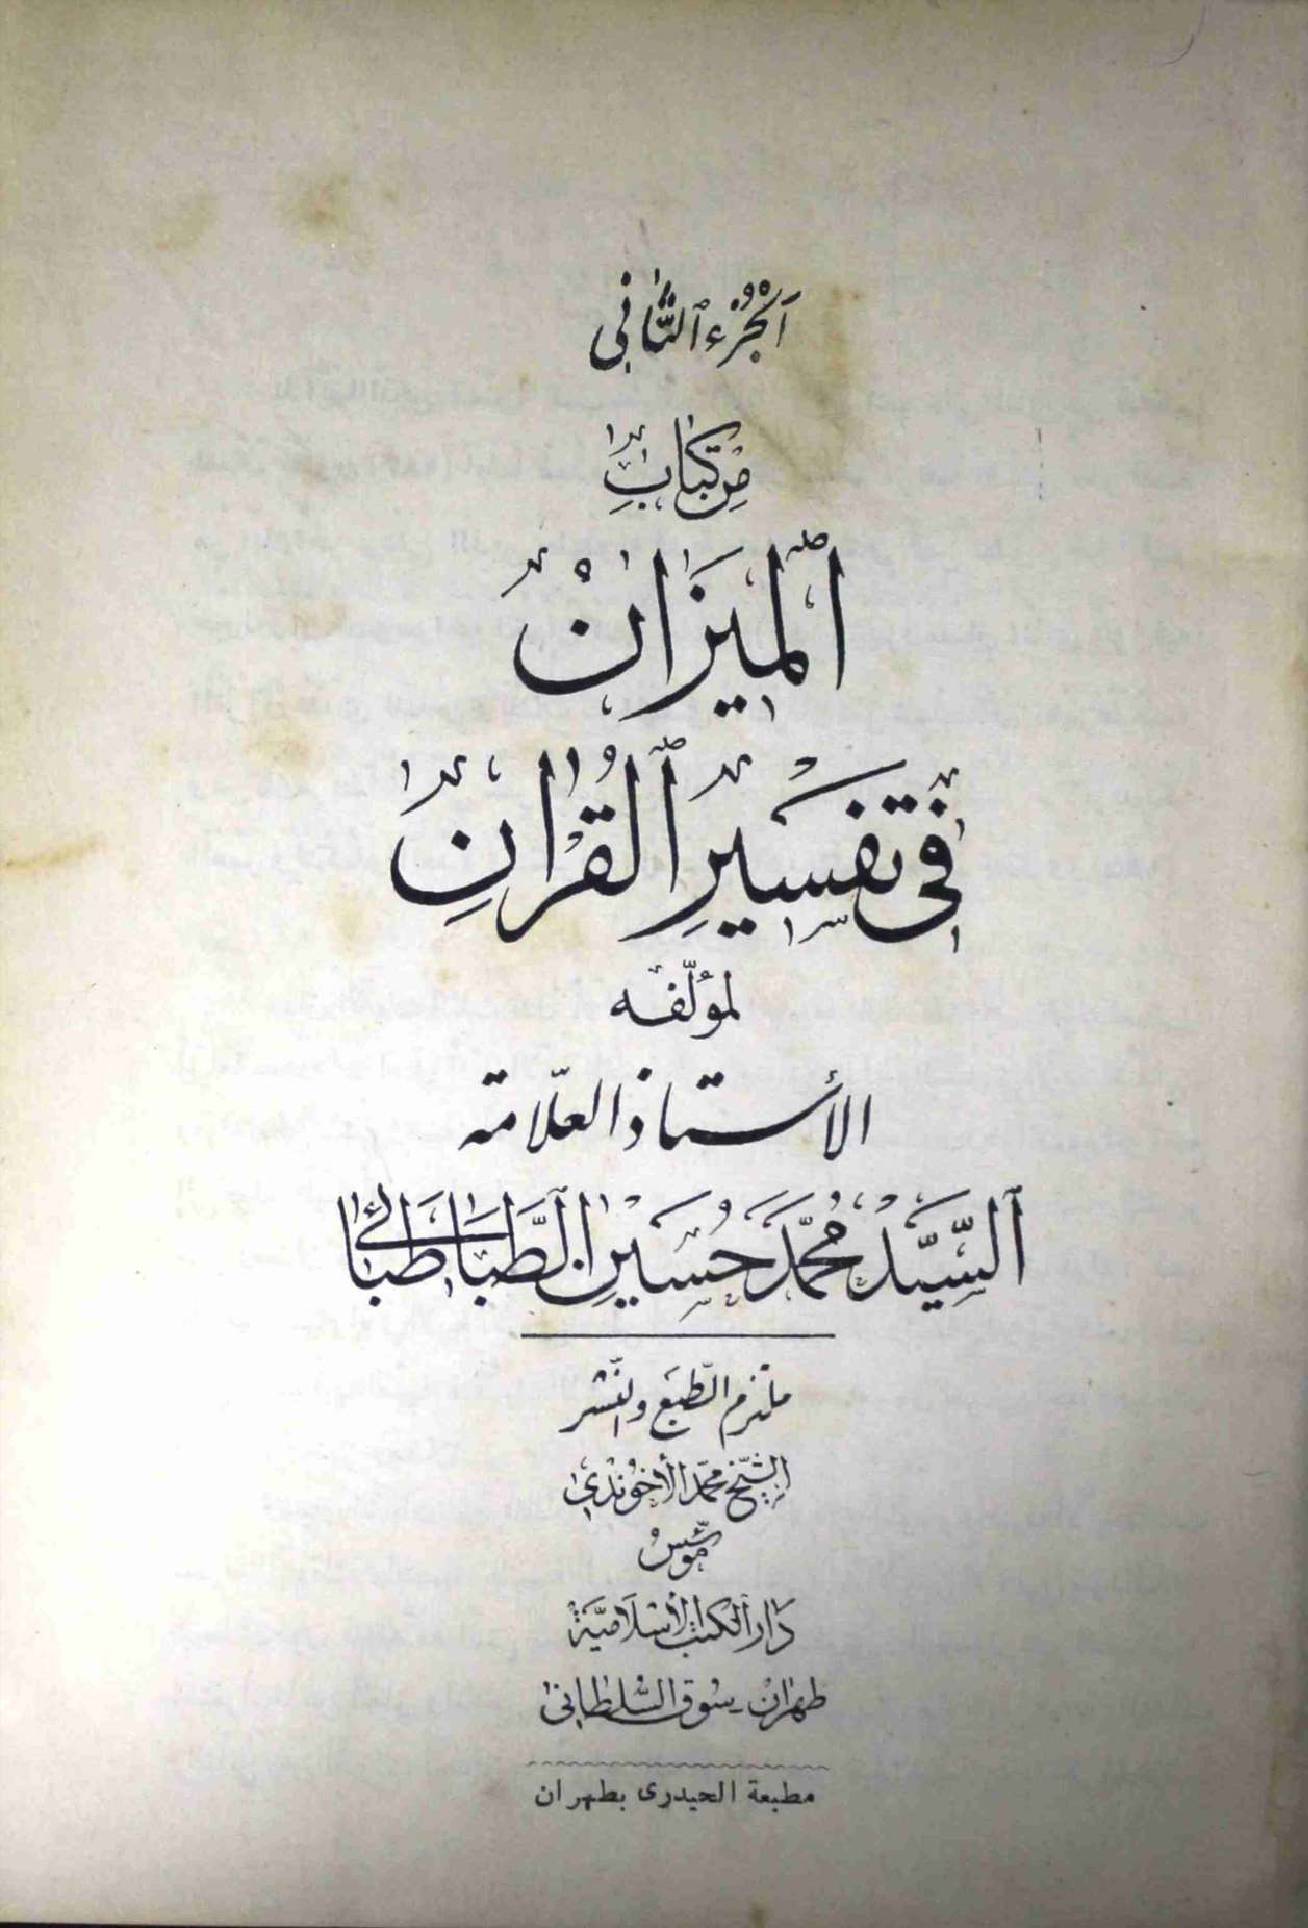 اَلْجُزْءُ الثَّانی
مِنْ كِتَابِ
اَلْمِيزَانْ
فی تَفْسِيرِ ٱلْقُرْانِ
لمؤلّفه
الأستاذ العلّامة
اَلسَّيِّدْ مُحَمَّدَ حُسَيْنِ الطَّبَاطَبَائی
ملتزم الطّبع والنّشر
الشّيخ محمّد الأخوندی
مؤسّس
دَارُ الكتب الأسْلَاميَّة
طهران - سوق السّلطانی
مطبعة الحيدری بطهران